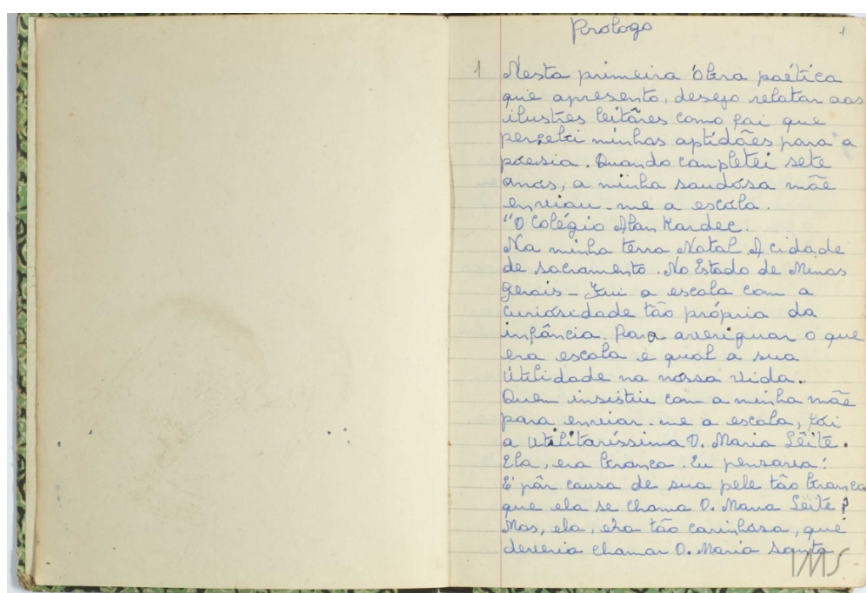 Prologo
1
1 Nesta primeira óbra poética
que apresento, desejo relatar aos
ilustres leitôres como foi que
percebi minhas aptidões para a
poesia. Quando completei sete
anos, a minha saudósa mãe
enviou-me a escóla.
"O Colégio Alan Kardec.
Na minha terra Natal A cidade
de Sacramento. No Estado de Minas
Gerais – Fui a escola com a
curiosidade tão própria da
infância. Para averiguar o que
era escola e qual a sua
útilidade na nossa vida.
Quem insistiu com a minha mãe
para enviar-me a escola, foi
a utilitaríssima D. Maria Lêite.
Ela, era branca. Eu pensava:
É pôr causa de sua pele tão branca
que ela se chama D. Maria Leite?
Mas, ela, era tão carinhosa, que
deveria chamar D. Maria Santa
IMS